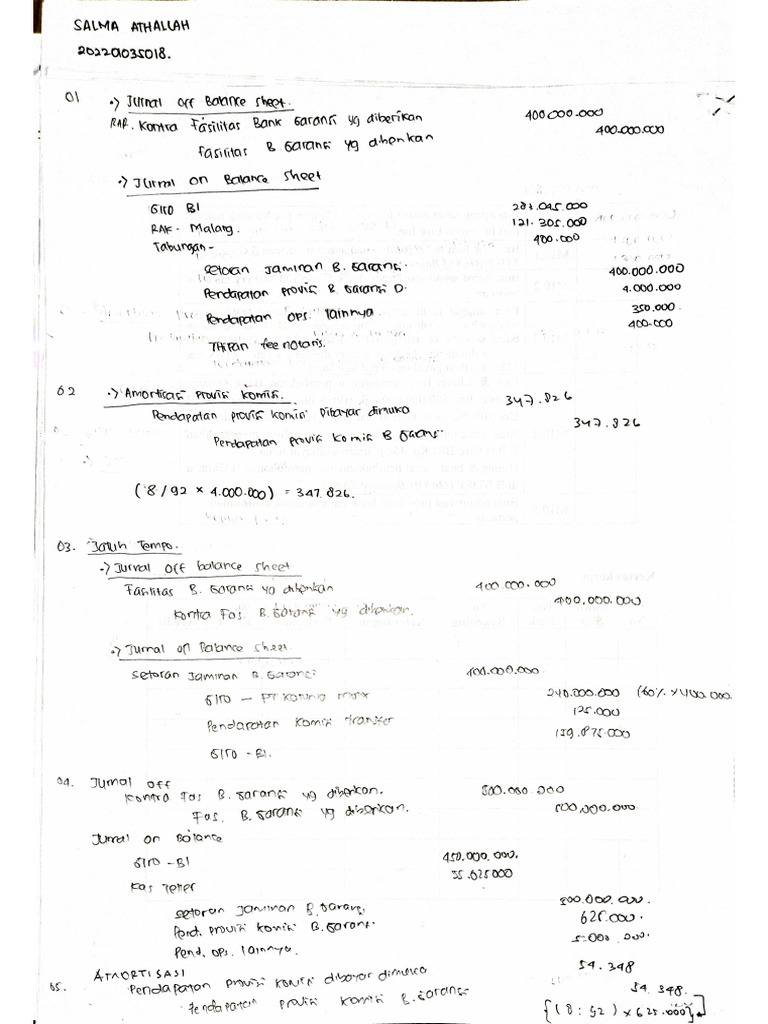 SALMA ATHALLAH
20220035018.
01 •) Jurnal Off Balance Sheet.
RAR. Kontra Fasilitas Bank Garansi yg diberikan 400.000.000
Fasilitas B. Garansi yg diberikan 400.000.000
•) Jurnal on Balance sheet
Giro BI
RAK - Malang. 121.305.000
Tabungan - 400.000
Setoran Jaminan B. Garansi. 400.000.000
Pendapatan Provisi B. Garansi D. 4.000.000
Pendapatan ops. lainnya 350.000.
Titipan fee notaris. 400.000
02 •) Amortisasi Provisi Komisi.
Pendapatan provisi komisi Dibayar dimuka 347.826
Pendapatan provisi komisi B Garansi 347.826
(8/92 x 4.000.000) = 347.826.
03. Jatuh Tempo.
•) Jurnal Off balance sheet
Fasilitas B. Garansi yg diberikan 400.000.000
Kontra Fas. B. Garansi yg diberikan. 400.000.000
•) Jurnal on Balance sheet.
Setoran Jaminan B. Garansi 400.000.000
Giro - PT motor 240.000.000 (60% x 400.000.
Pendapatan Komisi transfer 125.000
Giro - BI. 159.875.000
04. Jurnal Off
Kontra Fas B. Garansi yg diberikan. 500.000.000
Fas. B. Garansi yg diberikan. 500.000.000
Jurnal on Balance
Giro - BI 450.000.000.
Kas Teller 35.625000
Setoran Jaminan B. Garansi
Pend. provisi komisi B. Garansi. 625.000.
Pend. ops. lainnya.
05. AMORTISASI
Pendapatan provisi komisi dibayar dimuka 54.348
Pendapatan provisi komisi B. Garansi 54.348.
{(8 : 92) x 625.000}